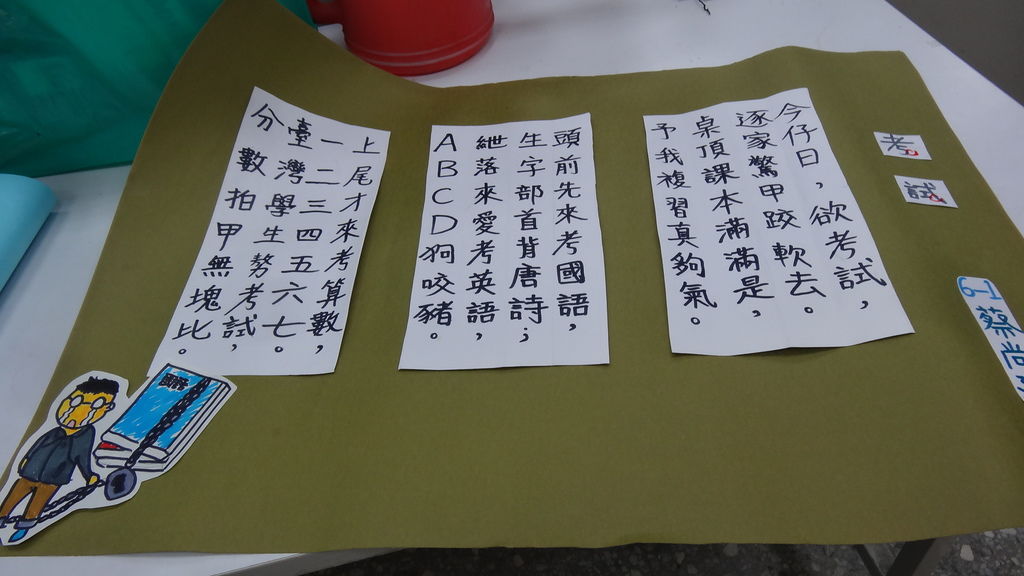 考
試
6-1 蔡尚
今仔日，欲考試，
逐家驚甲跤軟去。
桌頂課本滿滿是，
予我複習真夠氣。
頭前先來考國語，
生字部首背唐詩；
紲落來愛考英語，
ABCD狗咬豬。
上尾才來考算數，
一二三四五六七。
臺灣學生勢考試，
分數拍甲無塊比。